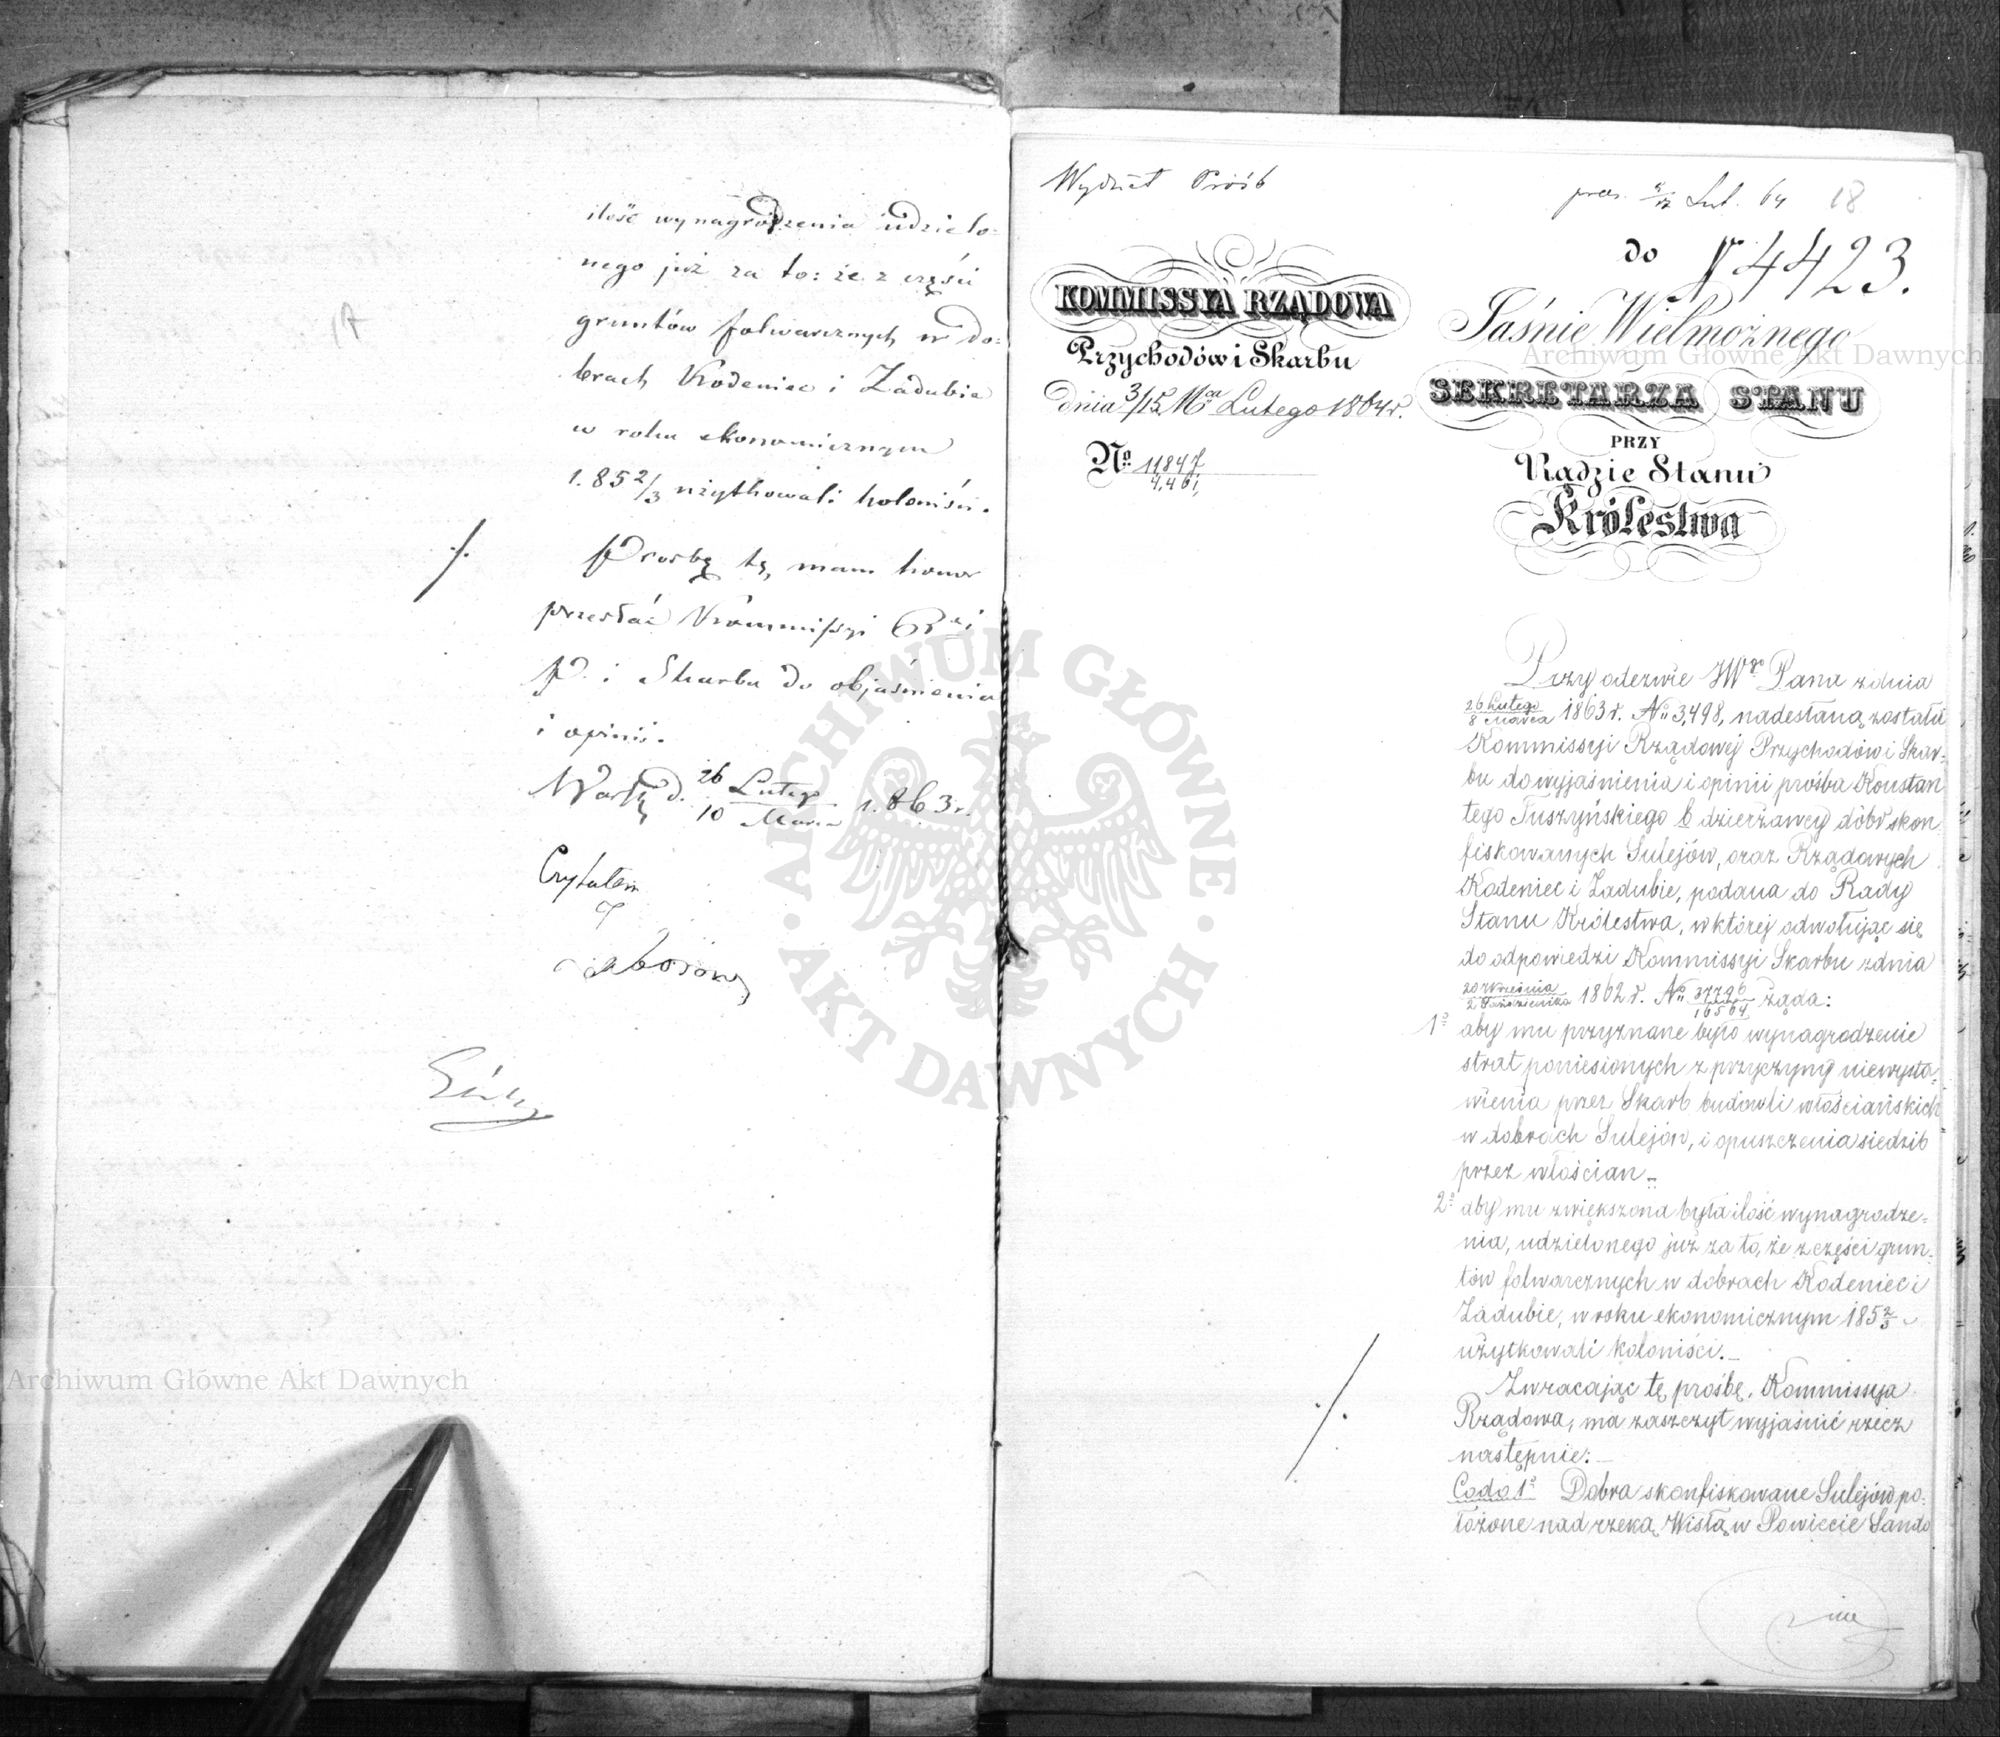 ilość wynagrodzenia udzielo=
nego już za to: że z części
gruntów folwarcznych w do=
brach Kodeniec i Zadubie
w roku ekonomicznym
1.85 2/3 użytkowali koloniści.
Prośbę tę, mam honor
przesłać Kommissyi
P. i Skarbu do objaśnienia
i opinii.
Warsz. d. 26 Lutego / 10 Marca 1.863 r.
Czytałem
Wydział Próśb
prez. Lut. 64 18
KOMMISSYA RZĄDOWA
Przychodów i Skarbu
dnia 3/15 Mca Lutego 1864 r.
No. 11847 / 4,461,
do
N 4423.
Jaśnie Wielmożnego
SEKRETARZA STANU
PRZY
Radzie Stanu
Królestwa
Przy odezwie JWgo Pana z dnia
26 Lutego / 8 Marca 1863 r. No 3,498, nadesłaną została
Kommissyi Rządowej Przychodów i Skar-
bu do wyjaśnienia i opinii prośba Konstan
tego Tuszyńskiego b dzierżawcy dóbr skon
fiskowanych Sulejów, oraz Rządowych
Kodeniec i Zadubie, podana do Rady
Stanu Królestwa, w której odwołując się
do odpowiedzi Kommissyi Skarbu z dnia
20 Września / 2 Października 1862 r. No 37796 / 16564 żąda:
1o aby mu przyznane było wynagrodzenie
strat poniesionych z przyczyny niewysta-
wienia przez Skarb budowli włościańskich
w dobrach Sulejów, i opuszczenia siedzib
przez włościan
2o aby mu zwiększona była ilość wynagrodze=
nia, udzielonego już za to, że z części grun-
tów folwarcznych w dobrach Kodeniec i
Zadubie, w roku ekonomicznym 185 2/3
użytkowali koloniści.
Zwracając tę prośbę, Kommissya
Rządowa, ma zaszczyt wyjaśnić rzecz
następnie:
Co do 1o Dobra skonfiskowane Sulejów po-
łożone nad rzeką Wisłą w Powiecie Sando
Archiwum Główne Akt Dawnych
Archiwum Główne Akt Dawnych
ARCHIWUM GŁÓWNE
AKT DAWNYCH